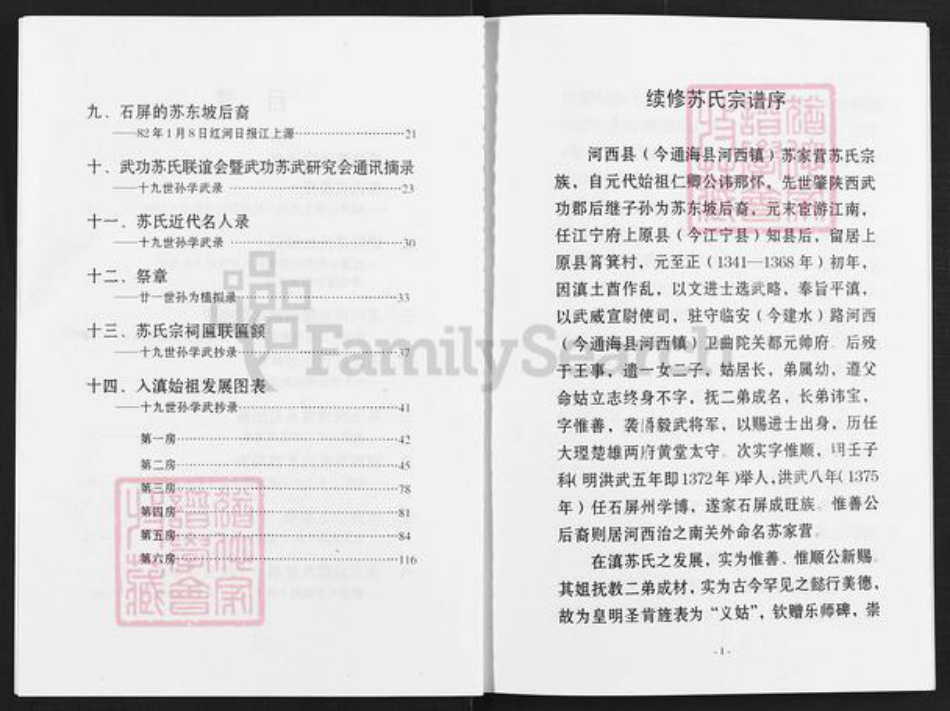 九．石屏的苏东坡后裔
——82年1月8日红河日报江上源……21
十．武功苏氏联谊会暨武功苏武研究会通讯摘录
——十九世孙学武录……23
十一．苏氏近代名人录
——十九世孙学武录……30
十二．祭章
——廿一世孙为植拟录……33
十三．苏氏宗祠匾联匾额
——十九世孙学武抄录……37
十四．入滇始祖发展图表
——十九世孙学武抄录……41
第一房……42
第二房……45
第三房……78
第四房……81
第五房……84
第六房……116
续修苏氏宗谱序
河西县（今通海县河西镇）苏家营苏氏宗
族，自元代始祖仁卿公讳那怀，先世肇陕西武
功郡后继子孙为苏东坡后裔，元末宦游江南，
任江宁府上原县（今江宁县）知县后，留居上
原县筲箕村，元至正（1341—1368年）初年，
因滇土酋作乱，以文进士选武略，奉旨平滇，
以武威宣尉使司，驻守临安（今建水）路河西
（今通海县河西镇）卫曲陀关都元帅府。后殁
于王事，遗一女二子，姑居长，弟属幼，遵父
命姑立志终身不字，抚二弟成名，长弟讳宝，
字惟善，袭 毅武将军，以赐进士出身，历任
大理楚雄两府黄堂太守。次实字惟顺，明壬子
科（明洪武五年即1372年）举人，洪武八年（1375
年）任石屏州学博，遂家石屏成旺族。惟善公
后裔则居河西治之南关外命名苏家营。
在滇苏氏之发展，实为惟善、惟顺公新赐。
其姐抚教二弟成材，实为古今罕见之懿行美德，
故为皇明圣肯旌表为“义姑”，钦赠乐师碑，崇
-1-
FamilySearch